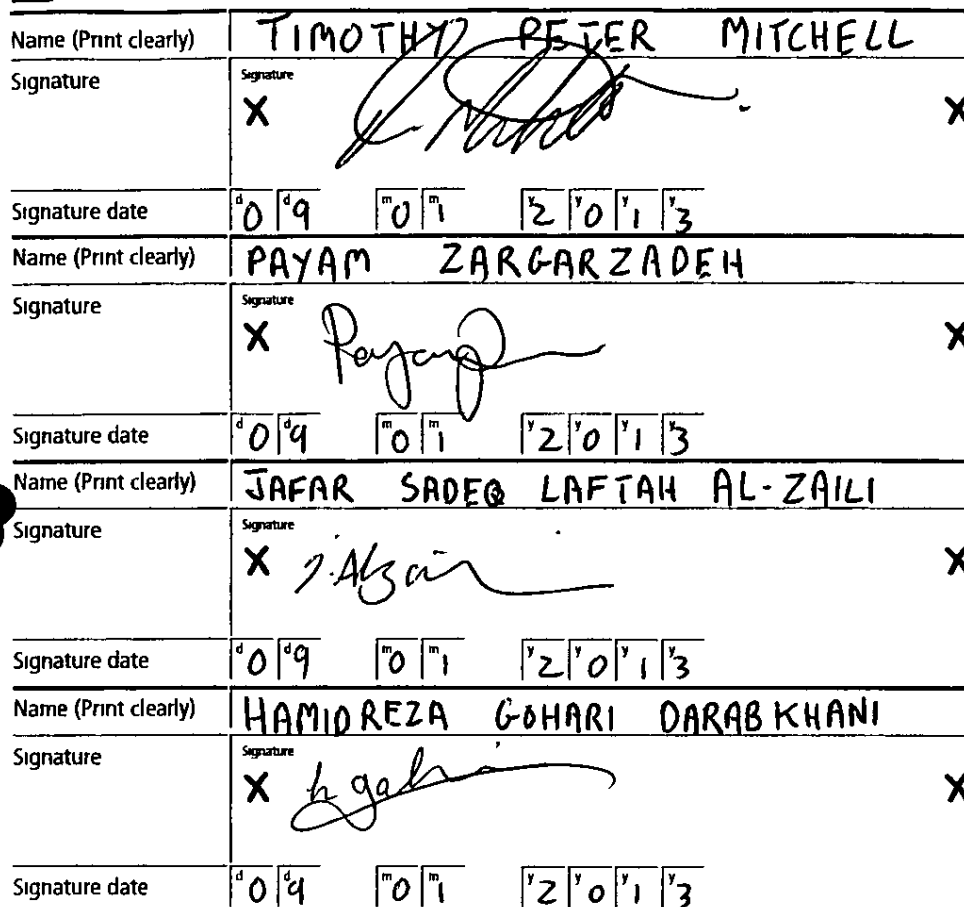 Name (Print clearly) TIMOTHY PETER MITCHELL
Signature Signature X X
Signature date d0 d9 m0 m1 y2 y0 y1 y3
Name (Print clearly) PAYAM ZARGARZADEH
Signature Signature X X
Signature date d0 d9 m0 m1 y2 y0 y1 y3
Name (Print clearly) JAFAR SADEQ LAFTAH AL-ZAILI
Signature Signature X X
Signature date d0 d9 m0 m1 y2 y0 y1 y3
Name (Print clearly) HAMIDREZA GOHARI DARABKHANI
Signature Signature X X
Signature date d0 d9 m0 m1 y2 y0 y1 y3